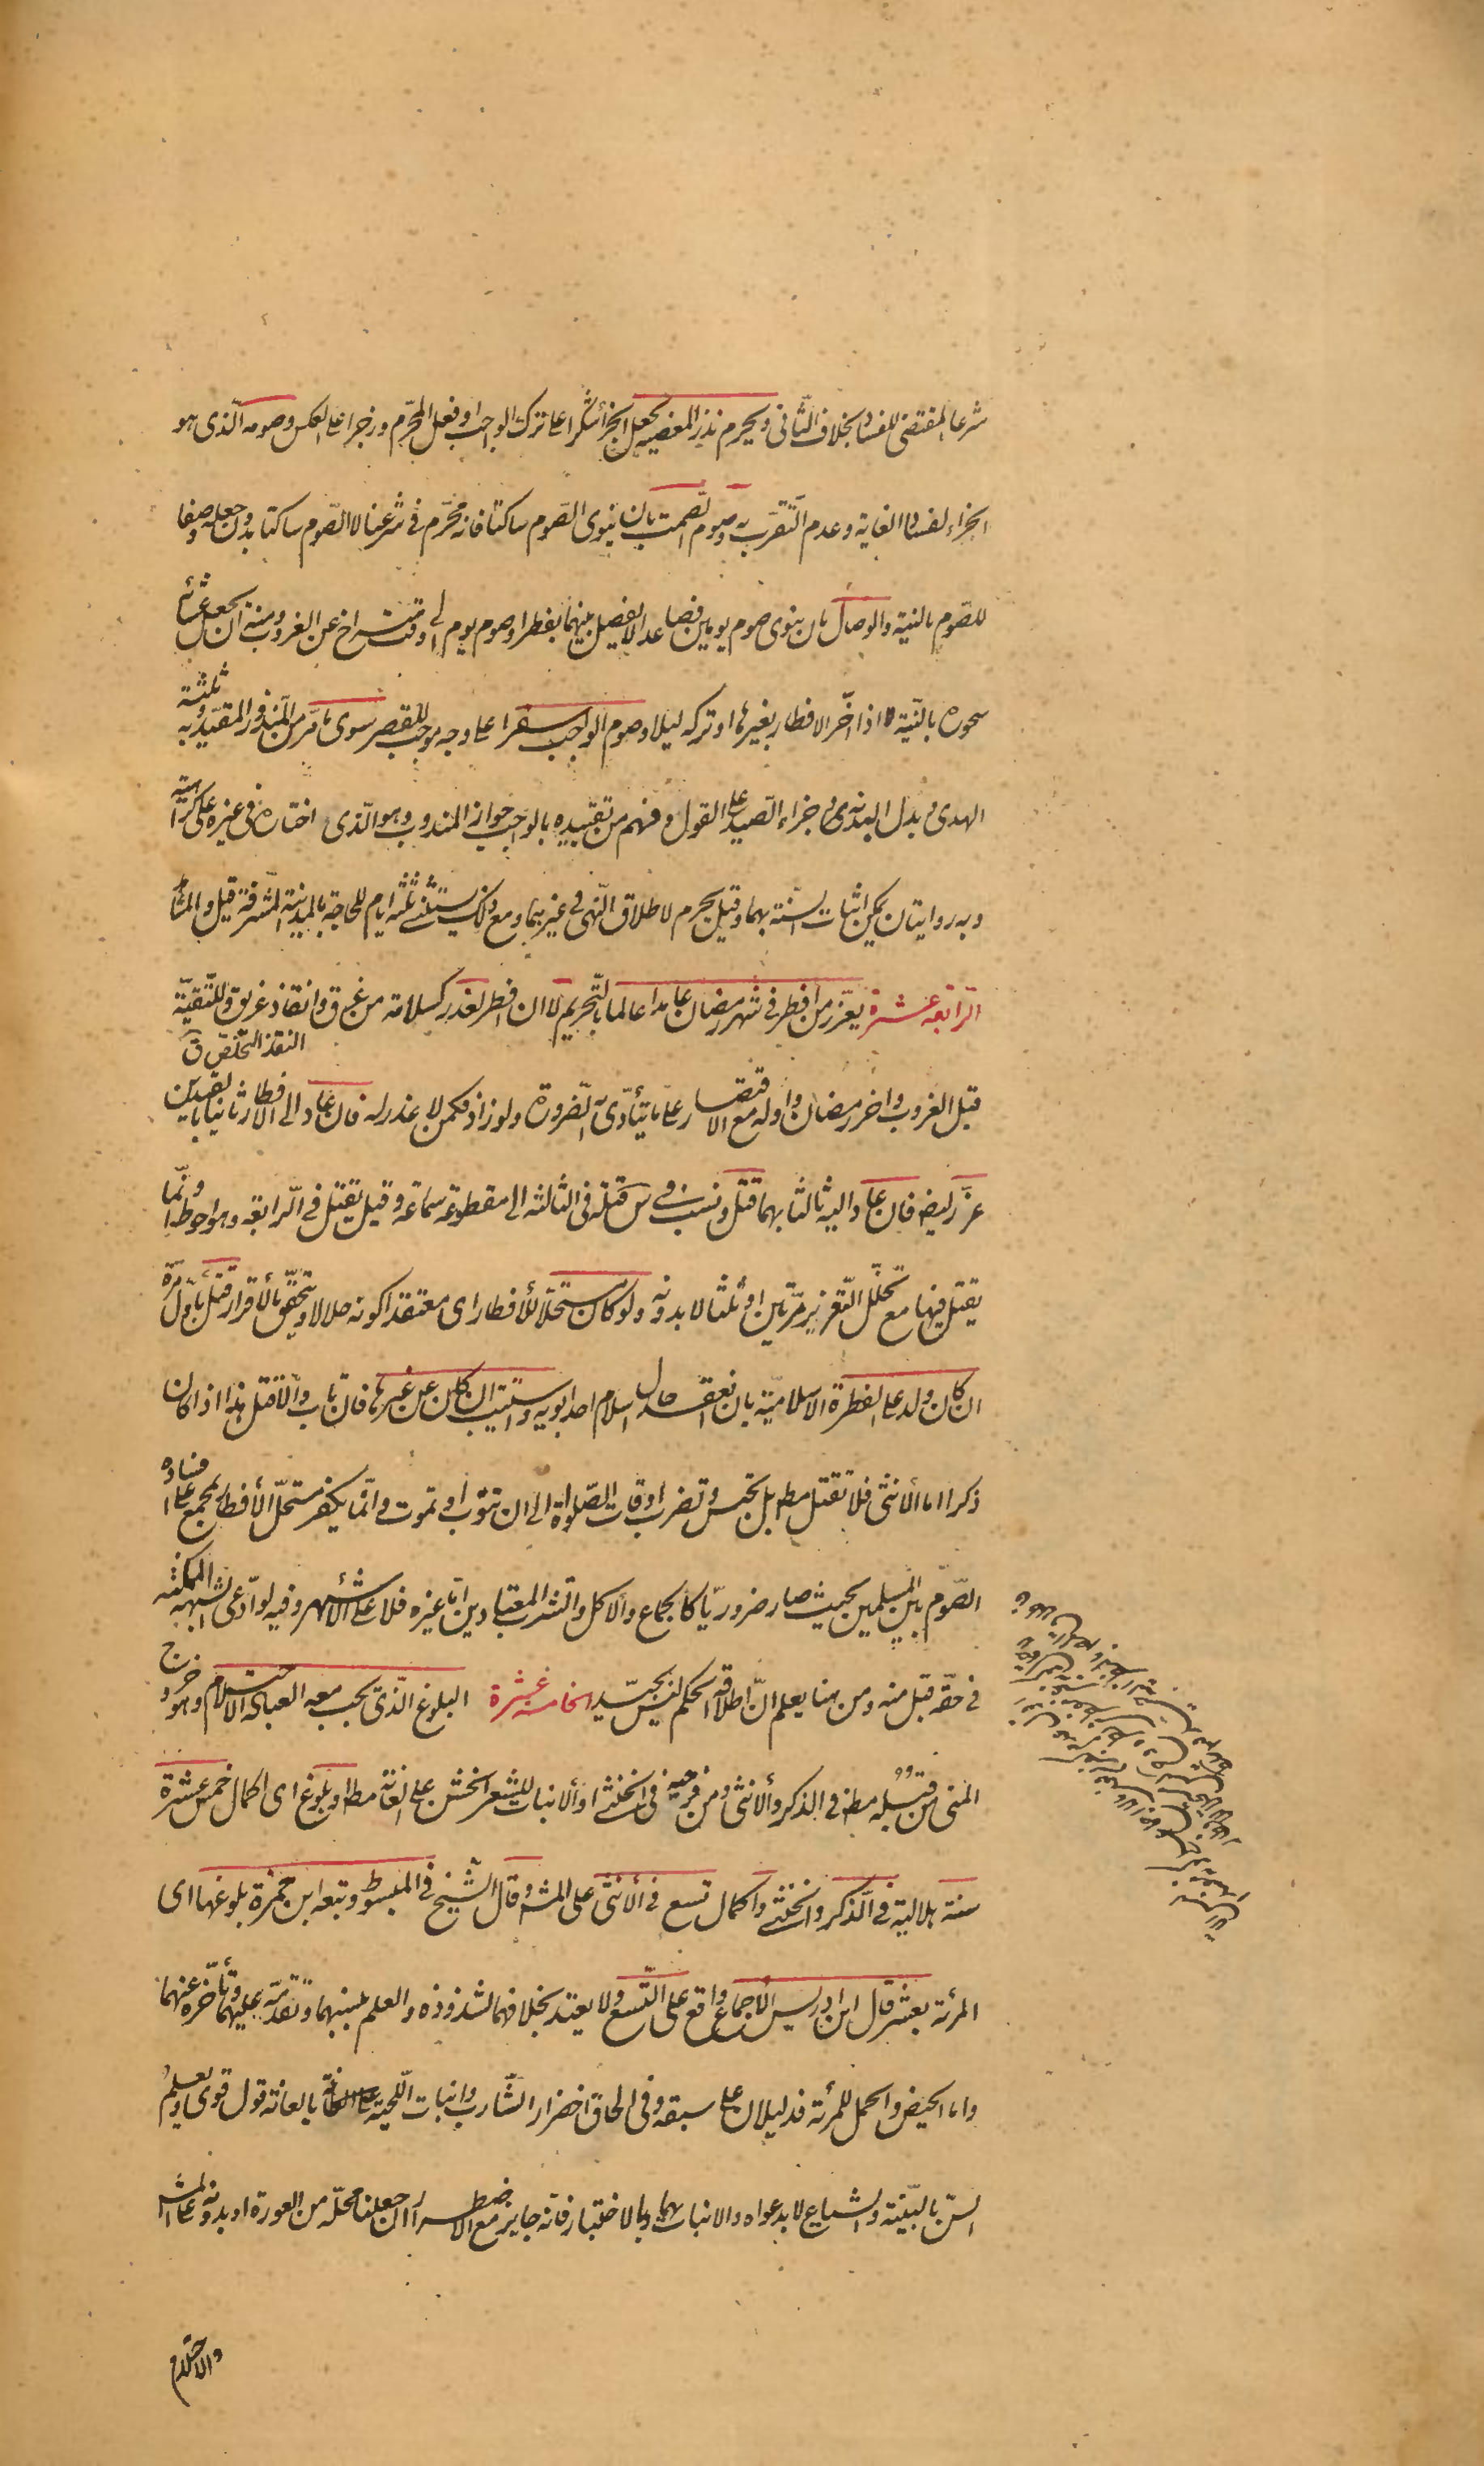 شرعا المقتضى للفساد بخلاف الثّانى ويحرم نذر المعصية بجعل الجزأ شكرا على ترك الواجب او فعل المحرّم وزجرا على العكس وصومه الّذى هو
الجزاء لفساد الغاية وعدم التّقرّب به وصوم الصّمت بان ينوى الصّوم ساكتا فانه محرّم فى شرعنا لا الصّوم ساكتا بدون جعله وصفا
للصّوم بالنيّة والوصال بان ينوى صوم يومين فصاعدا لا يفصل بينهما بفطر او صوم يوم الى وقت متراخ عن الغروب ومنه ان يجعل عشائه
سحوره بالنّية لا اذا اخّر الافطار بغيرها او تركه ليلا وصوم الواجب سفرا على وجه موجب للقصر سوى ما مرّ من المنذور المقيّد به وثلثة
الهدى وبدل البدنة وجزاء الصّيد على القول وفهم من تقييده بالواجب جواز المندوب وهو الّذى اختاره فى غيره على كراهية
وبه روايتان يمكن اثبات السّنة بهما وقيل يحرم لاطلاق النّهى فى غيرهما ومع ذلك يستثنى ثلثه ايام للحاجة بالمدينة المشرّفة قيل والمشاهد
الرّابعة عشرة يعزّر من افطر فى شهر رمضان عامدا عالما بالتّحريم لا ان افطر لعذر كسلامة من غرق وانقاذ غريق وللتّقيّة
النقذ التخلّص ق
قبل الغروب واخر رمضان واوله مع الاقتصار على ما يتأدّى به الضّرورة ولو زاد فكمن لا عذر له فان عاد الى الافطار ثانيا بالقيدين
عزّر ايضا فان عاد اليه ثالثا بهما قتل ونسب فى س قتله فى الثالثه الى مقطوعة سماعة وقيل يقتل فى الرّابعة وهو احوط وانّما
يقتل فيها مع تخلّل التّعزير مرّتين او ثلثا لا بدونه ولو كان مستحلّا للأفطار اى معتقدا كونه حلالا ويتحقّق بالأقرار قتل باوّل مرّة
ان كان ولد على الفطرة الاسلاميّة بان انعقد حال اسلام احد ابويه واستتيب ان كان عن غيرها فان تاب والّا قتل هذا اذا كان
ذكرا اما الأنثى فلا تقتل مط بل تحبس وتضرب اوقات الصّلواة الى ان تتوب او تموت وانّما يكفر مستحلّ الأفطار بمجمع على افساده
الصّوم بين المسلمين بحيث صار ضروريّا كالجماع والأكل والشّرب المعتادين امّا غيره فلا على الأشهر وفيه لو ادّعى الشبهة الممكنة
فى حقّه قبل منه ومن هنا يعلم انّ اطلاقه الحكم ليس بجيّد الخامسة عشرة البلوغ الّذى يجب معه العبادة الاحتلام وهو خروج
المنى من قبله مط فى الذكر والأنثى ومن فرجيه فى الخنثى او الأنبات للشّعر الخشن على العانة مط او بلوغ اى اكمال خمس عشرة
سنة هلالية فى الذّكر والخنثى واكمال تسع فى الأنثى على المشهور وقال الشّيخ فى المبسوط وتبعه ابن حمزة بلوغها اى
المرئة بعشر قال ابن ادريس الأجماع واقع على التّسع ولا يعتد بخلافهما لشذوذه والعلم بنسبهما وتقدّمه عليهما وتأخّره عنهما
واما الحيض والحمل للمرئة فدليلان على سبقه وفى الحاق اخضرار الشّارب وانبات اللّحية بالعانة قول قوى ويعلم
السّن بالبيّنة والشياع لا بدعواه والانبات بهما وبالاختبار فانّه جايز مع الاضطرار ان جعلنا محلّه من العورة او بدونه على المش
والاحتلام